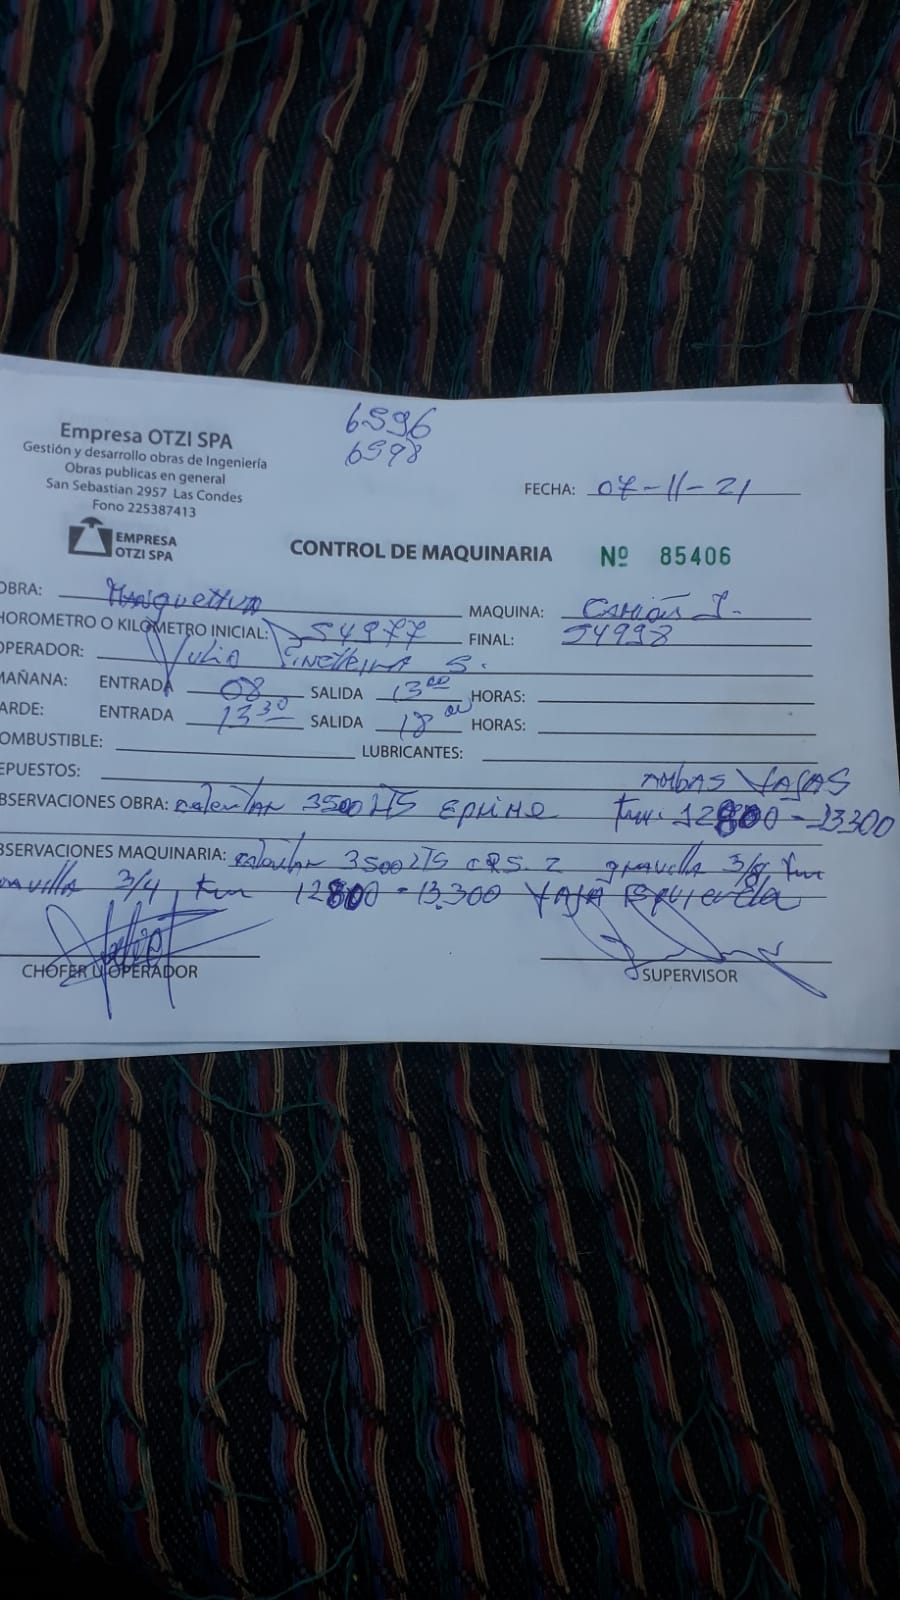 6596
6598
Empresa OTZI SPA
Gestión y desarrollo obras de Ingeniería
Obras publicas en general
San Sebastian 2957 Las Condes
Fono 225387413
FECHA: 07-11-21
EMPRESA
OTZI SPA
CONTROL DE MAQUINARIA Nº 85406
OBRA: MAQUINA: Camión I.
HOROMETRO O KILOMETRO INICIAL: 54977 FINAL: 54998
OPERADOR: Julio S.
MAÑANA: ENTRADA 08 SALIDA 13 00 HORAS:
TARDE: ENTRADA 13 30 SALIDA 18 00 HORAS:
COMBUSTIBLE: LUBRICANTES:
REPUESTOS:
AMBAS
OBSERVACIONES OBRA: calentar 3500 LTS 12800 - 13.300
OBSERVACIONES MAQUINARIA: calentar 3500 LTS CRS. 2 gravilla 3/8, Km
gravilla 3/4, Km 12800 - 13.300
CHOFER U OPERADOR SUPERVISOR